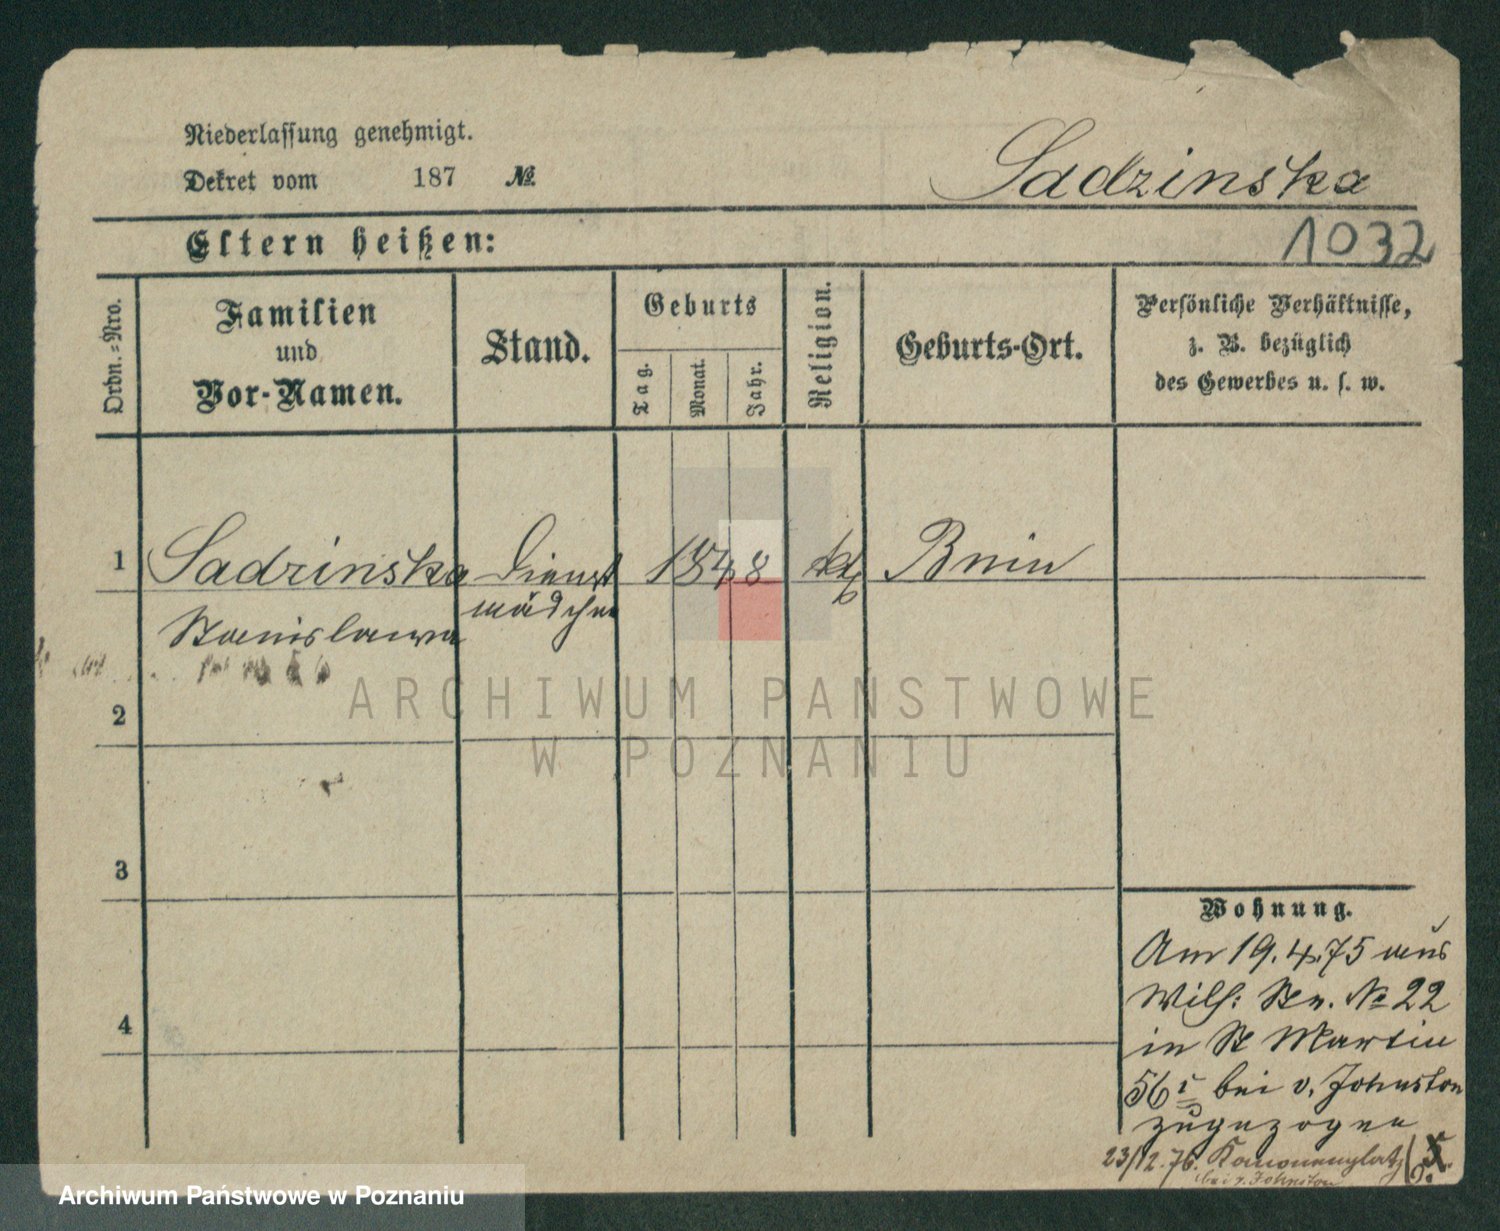 Niederlassung genehmigt.
Dekret vom 187 №
Sadzinska
Eltern heißen:
1032
Ordn.-Nro.
Familien
und
Vor-Namen.
Stand.
Geburts
Tag.
Monat.
Jahr.
Religion.
Geburts-Ort.
Persönliche Verhältnisse,
z. B. bezüglich
des Gewerbes u. s. w.
1
Sadzinska
Dienst
1848
kth
Bnin
Stanislawa
mädchen
2
3
4
Wohnung.
Am 19.4.75 aus
Wilh: Str. № 22
in St Martin
56 I bei v. Johnston
zugezogen
23/12.76. Kanonenplatz
bei v. Johnston
ARCHIWUM PAŃSTWOWE
W POZNANIU
Archiwum Państwowe w Poznaniu